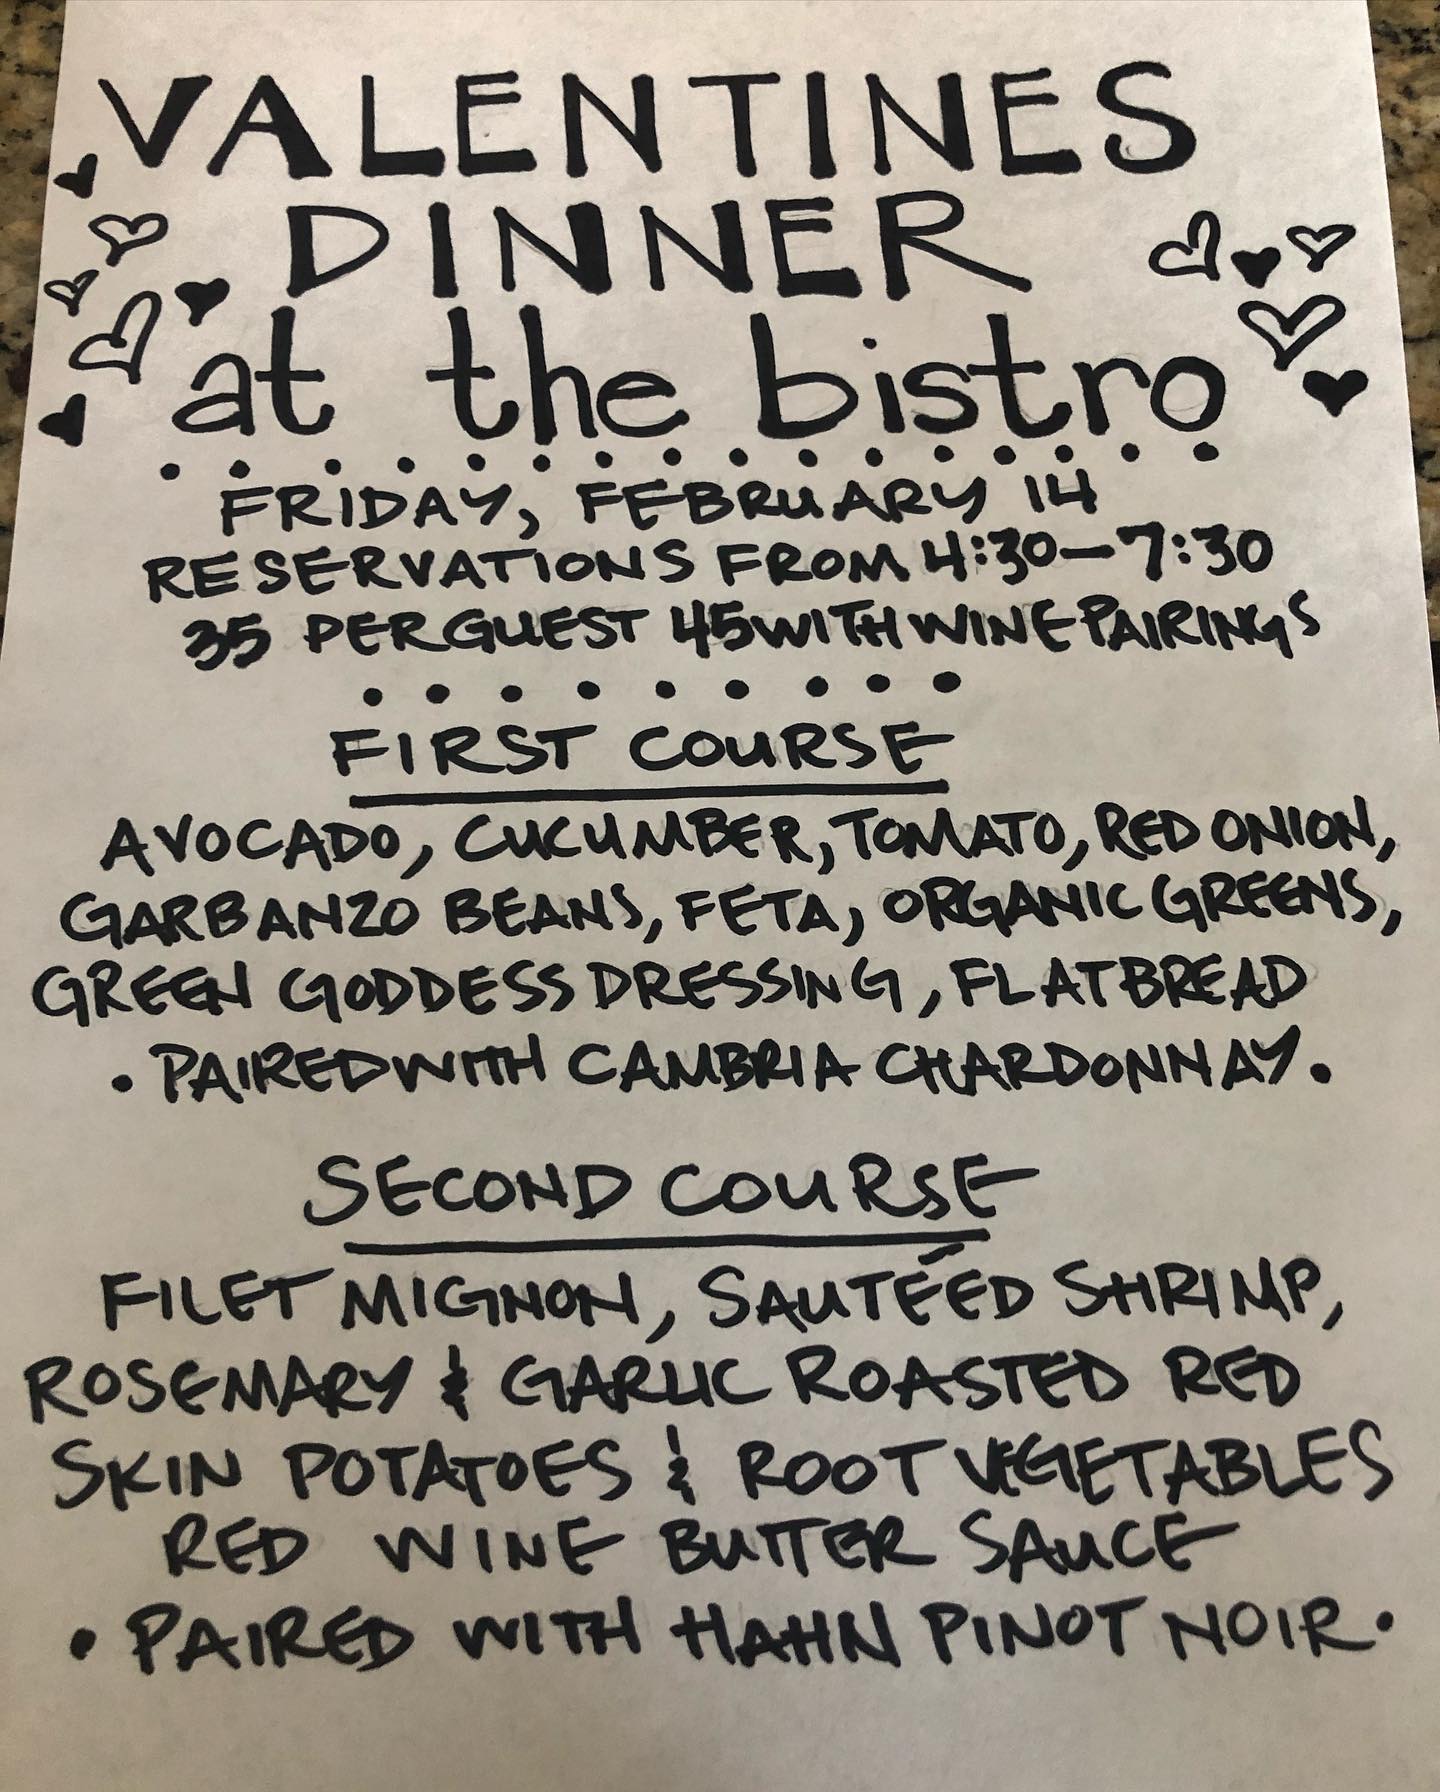 VALENTINES
DINNER
at the bistro
FRIDAY, FEBRUARY 14
RESERVATIONS FROM 4:30-7:30
35 PER GUEST 45 WITH WINE PAIRINGS
FIRST COURSE
AVOCADO, CUCUMBER, TOMATO, RED ONION,
GARBANZO BEANS, FETA, ORGANIC GREENS,
GREEN GODDESS DRESSING, FLATBREAD
• PAIRED WITH CAMBRIA CHARDONNAY •
SECOND COURSE
FILET MIGNON, SAUTÉED SHRIMP,
ROSEMARY & GARLIC ROASTED RED
SKIN POTATOES & ROOT VEGETABLES
RED WINE BUTTER SAUCE
• PAIRED WITH HAHN PINOT NOIR •